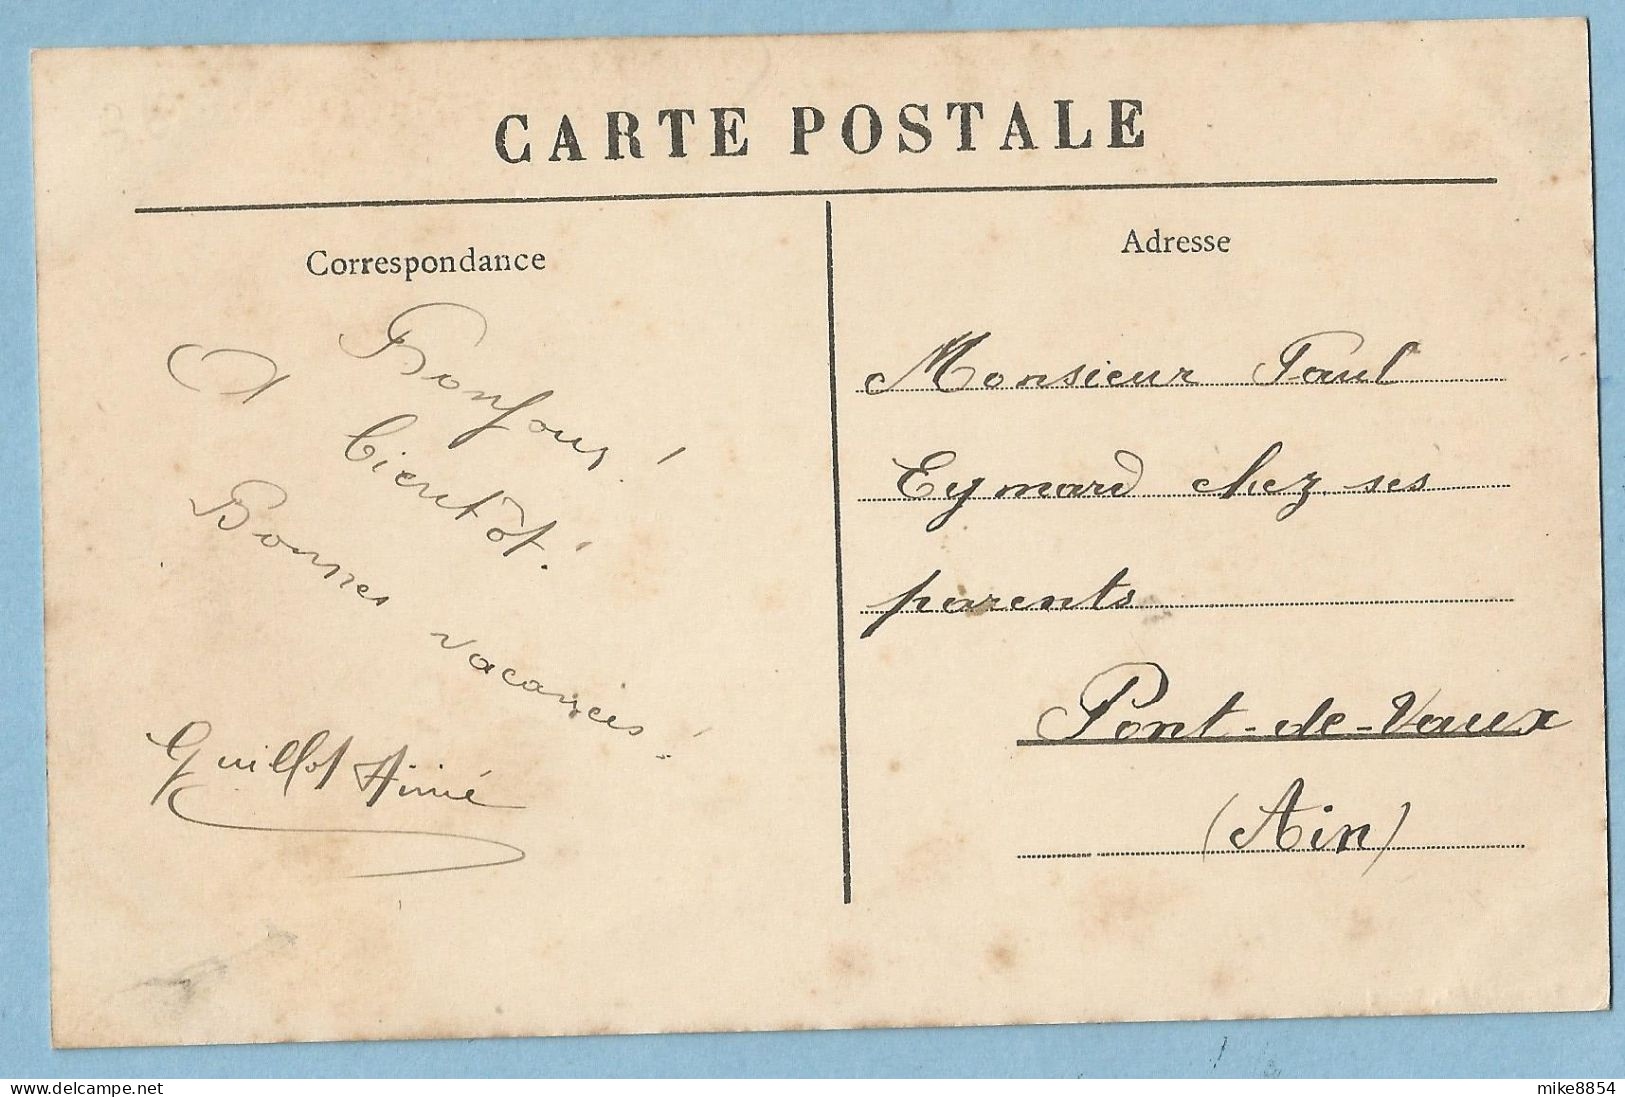 CARTE POSTALE
Correspondance
Bonjour !
A bientôt !
Bonnes vacances !
Guillot Aimé
Adresse
Monsieur Paul
Eymard chez ses
parents
Pont-de-Vaux
(Ain)
mike8854